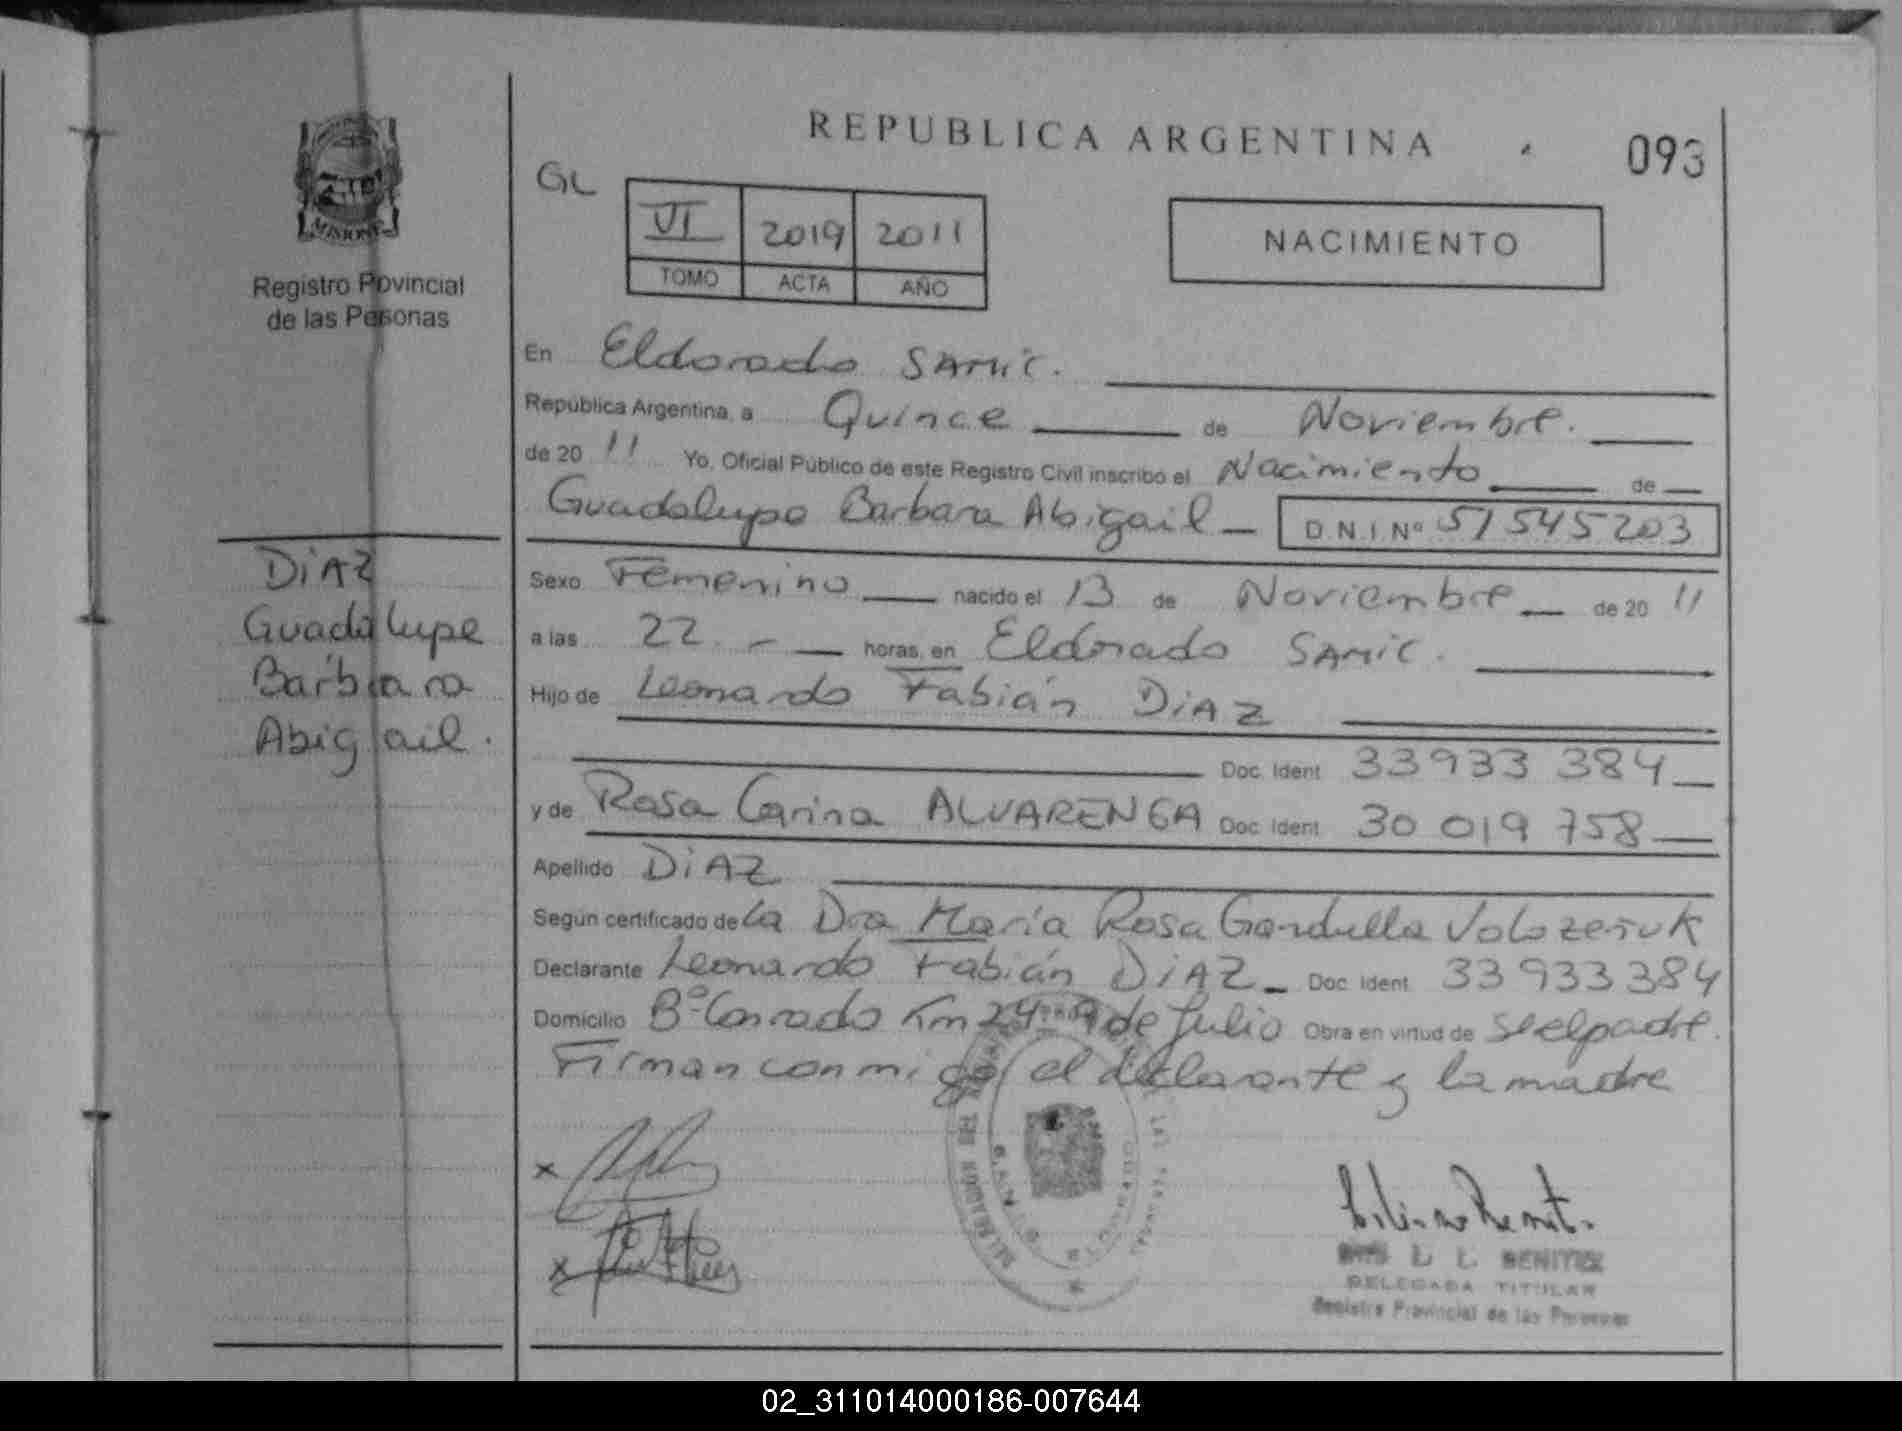 REPUBLICA ARGENTINA
093
GL
VI 2019 2011
TOMO ACTA AÑO
NACIMIENTO
MISIONES
Registro Povincial
de las Pesonas
En Eldorado SAMIC.
República Argentina, a Quince de Noviembre.
de 20 11 Yo, Oficial Público de este Registro Civil inscribo el Nacimiento de
Guadalupe Barbara Abigail D.N.I Nº 51545203
DIAZ
Guadalupe
Barbara
Abigail.
Sexo Femenino nacido el 13 de Noviembre de 20 11
a las 22.- horas, en Eldorado SAMIC.
Hijo de Leonardo Fabián DIAZ
Doc. Ident 33933 384
y de Rosa Carina ALVARENGA Doc. Ident 30 019 758
Apellido DIAZ
Según certificado de La Dra María Rosa Gandulla
Declarante Leonardo Fabián DIAZ Doc. Ident. 33 933 384
Domicilio Bº Conrado Km 24 9 de Julio Obra en virtud de se el padre.
Firman conmigo el declarante y la madre
x
x
DELEGACION DEL REGISTRO LAS PERSONAS
ELDORADO
BENITEZ
DELEGADA TITULAR
Registro Provincial de las Personas
02_311014000186-007644